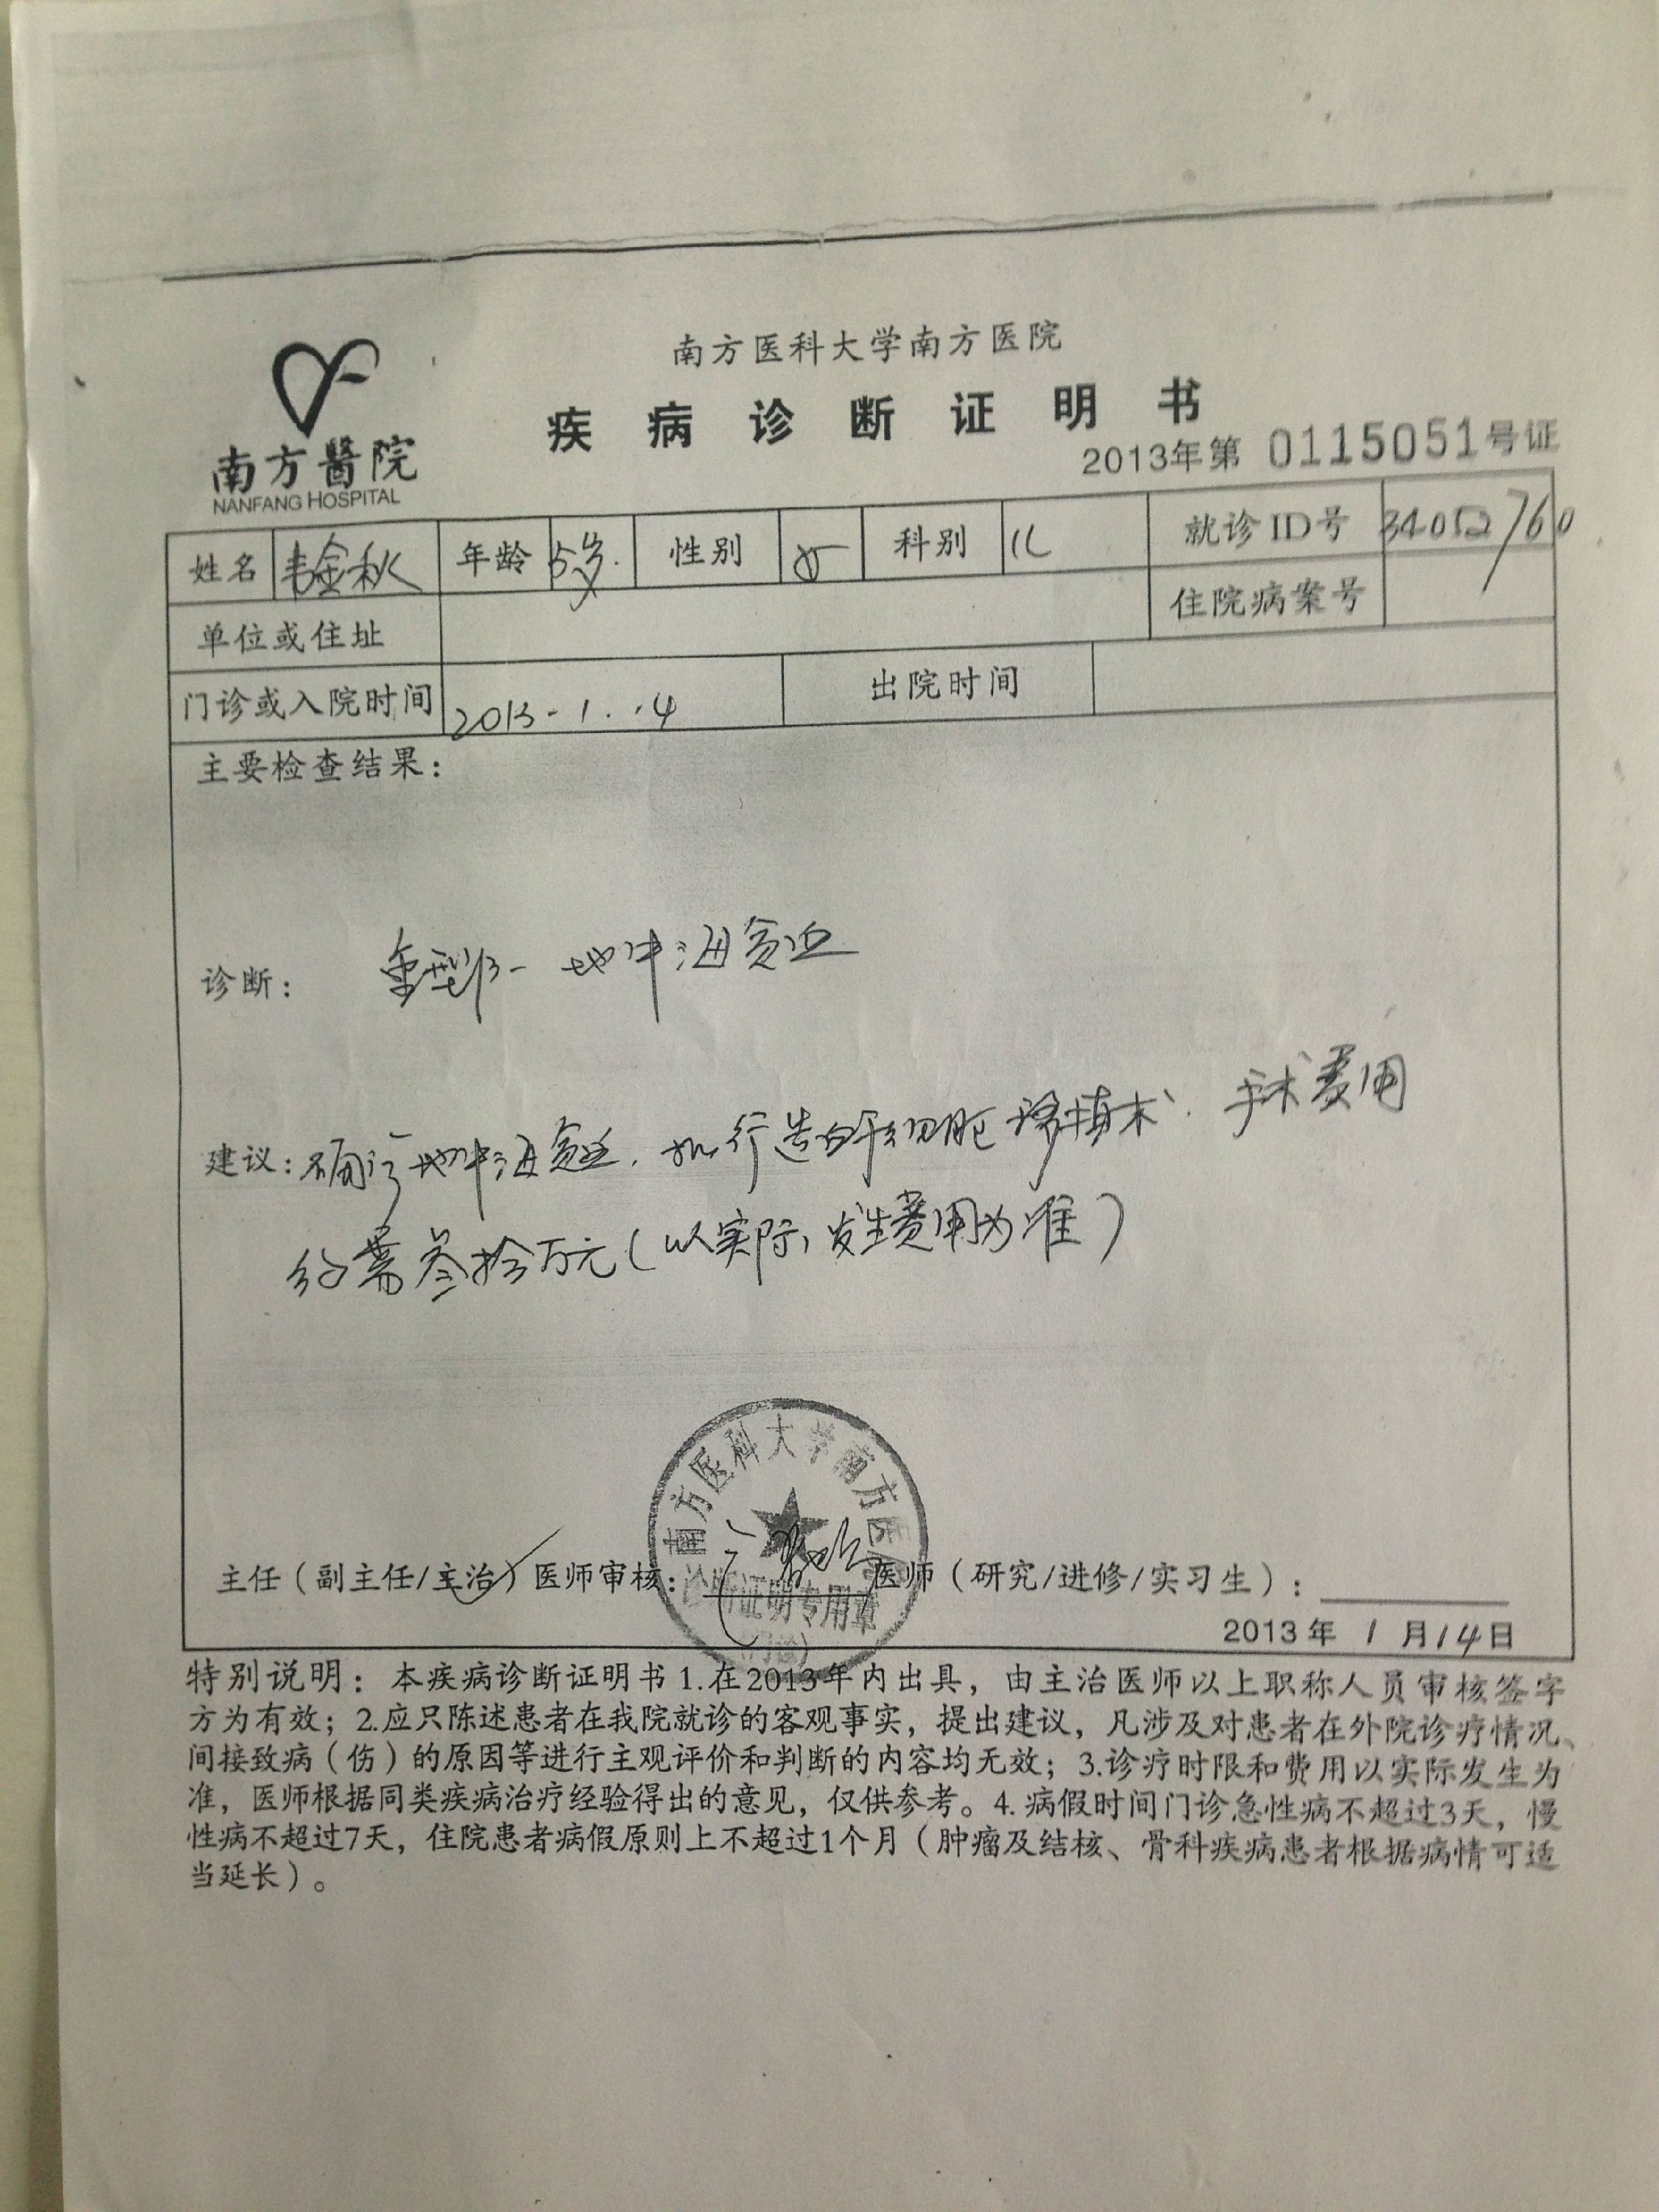 南方医科大学南方医院
疾病诊断证明书
南方醫院
NANFANG HOSPITAL
2013年第 0115051号证
姓名 韦金秋 年龄 5岁. 性别 女 科别 儿 就诊ID号
单位或住址 住院病案号
门诊或入院时间 2013-1.14 出院时间
主要检查结果:
诊断: 重型β-地中海贫血
建议: 确诊地中海贫血. 拟行造血干细胞移植术. 手术费用
约需叁拾万元(以实际发生费用为准)
南方医科大学南方医院
诊断证明专用章
主任(副主任/主治)医师审核: 医师(研究/进修/实习生):
2013年1月14日
特别说明:本疾病诊断证明书1.在2013年内出具,由主治医师以上职称人员审核签字
方为有效;2.应只陈述患者在我院就诊的客观事实,提出建议,凡涉及对患者在外院诊疗情况、
间接致病(伤)的原因等进行主观评价和判断的内容均无效;3.诊疗时限和费用以实际发生为
准,医师根据同类疾病治疗经验得出的意见,仅供参考。4.病假时间门诊急性病不超过3天,慢
性病不超过7天,住院患者病假原则上不超过1个月(肿瘤及结核、骨科疾病患者根据病情可适
当延长)。